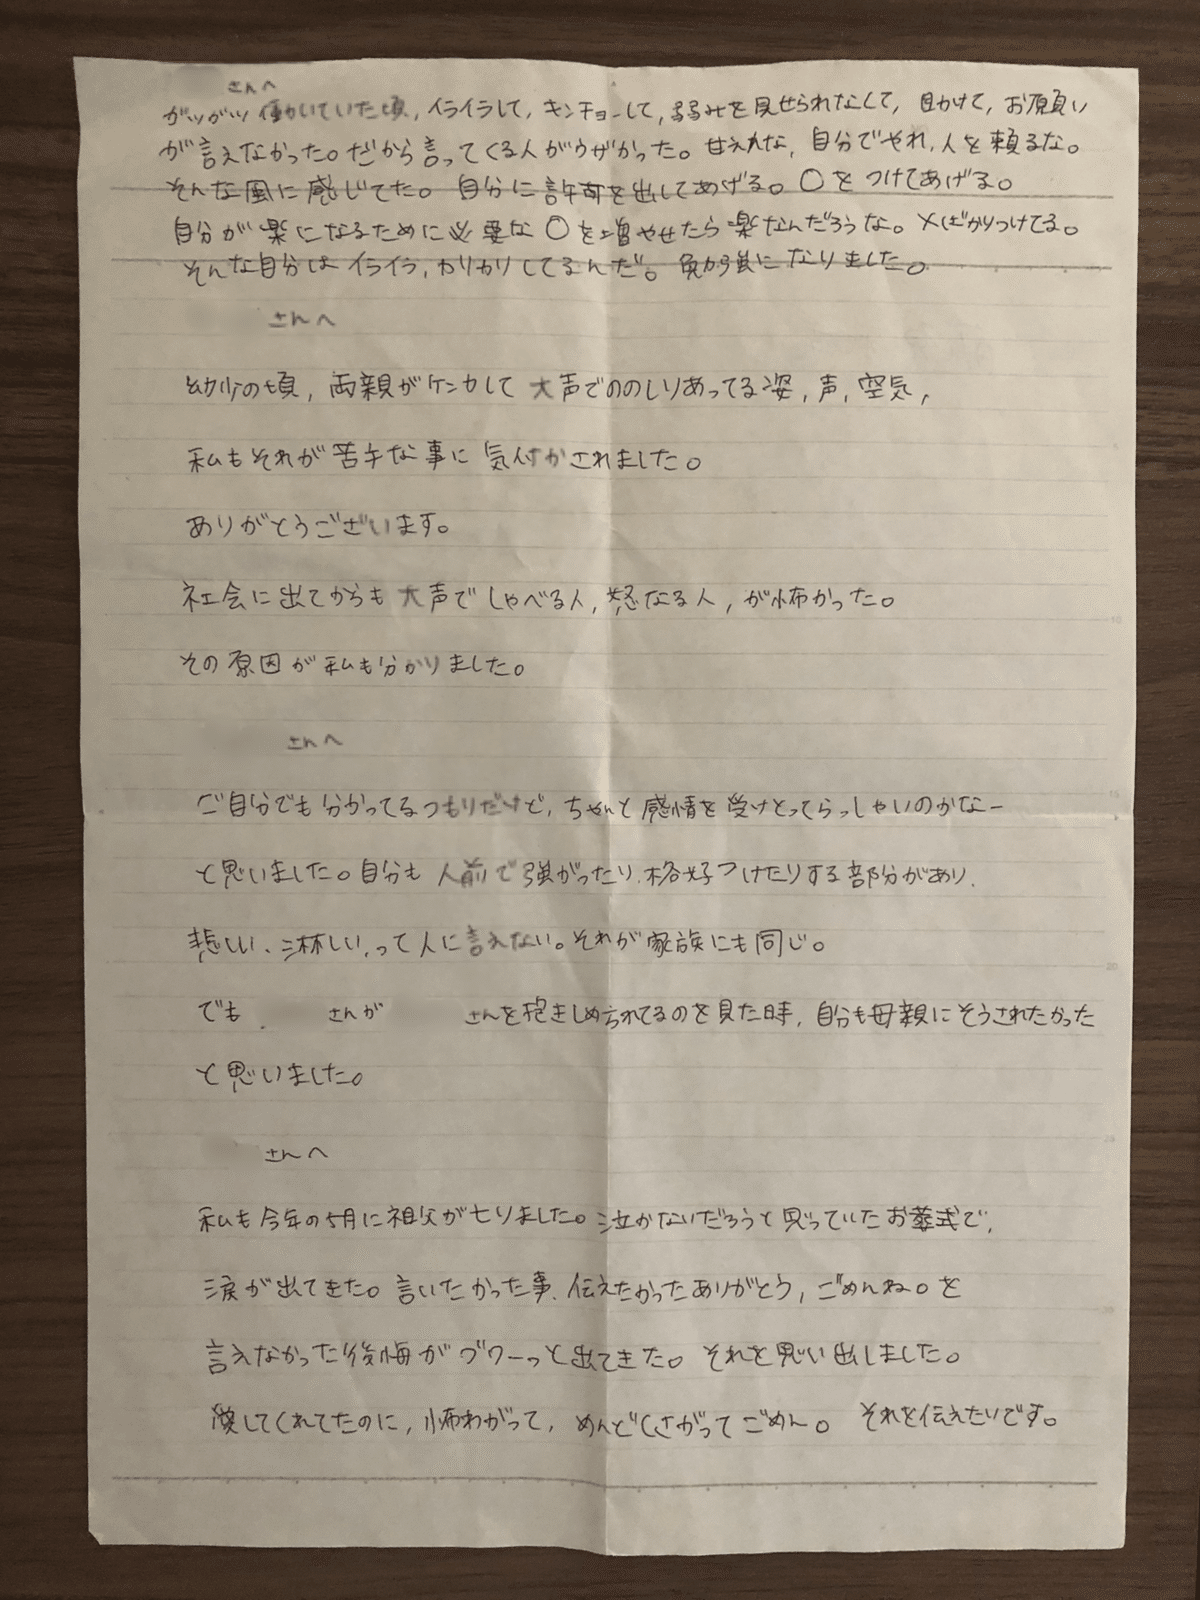 さんへ
ガツガツ働いていた頃,イライラして,キンチョーして,弱みを見せられなくて,助けて,お願い
が言えなかった。だから言ってくる人がウザかった。甘えれな,自分でやれ,人を頼るな。
そんな風に感じてた。自分に許可を出してあげる。〇をつけてあげる。
自分が楽になるために必要な〇を増やせたら楽なんだろうな。×ばかりつけてる。
そんな自分はイライラ,カリカリしてるんだ。勉強になりました。
さんへ
幼少の頃,両親がケンカして大声でののしりあってる姿,声,空気,
私もそれが苦手な事に気付かされました。
ありがとうございます。
社会に出てからも大声でしゃべる人,怒なる人,が怖かった。
その原因が私も分かりました。
さんへ
ご自分でも分かってるつもりだけど,ちゃんと感情を受けとってらっしゃいのかなー
と思いました。自分も人前で強がったり、格好つけたりする部分があり、
悲しい、淋しい、って人に言えない。それが家族にも同じ。
でも、 さんが さんを抱きしめられてるのを見た時,自分も母親にそうされたかった
と思いました。
さんへ
私も今年の5月に祖父が亡りました。泣かないだろうと思っていたお葬式で,
涙が出てきた。言いたかった事、伝えたかったありがとう,ごめんね。を
言えなかった後悔がブワーっと出てきた。それを思い出しました。
愛してくれてたのに,怖わがって,めんどくさがってごめん。それを伝えたいです。